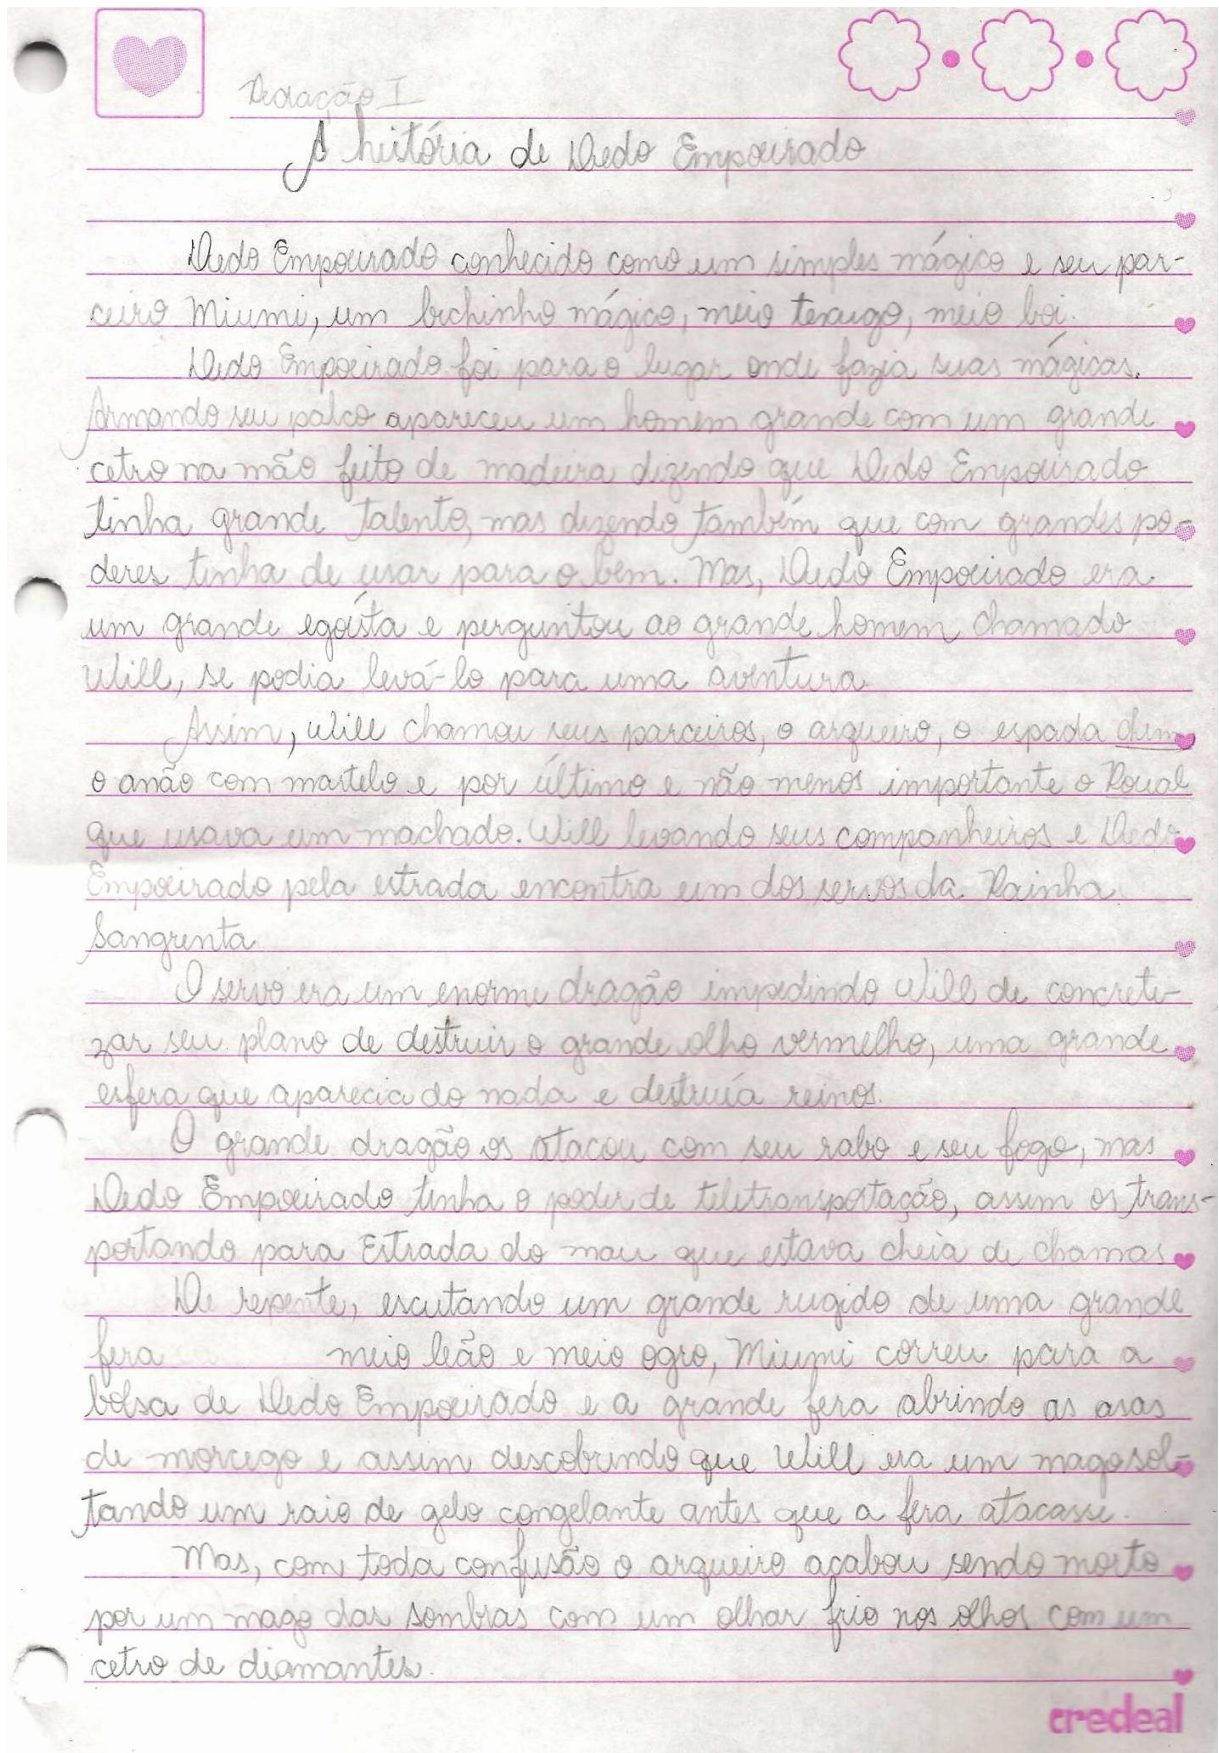 Redação I
A história de Dedo Empoeirado
Dedo Empoeirado conhecido como um simples mágico e seu par-
ceiro Miumi, um bichinho mágico, meio texugo, meio boi.
Dedo Empoeirado foi para o lugar onde fazia suas mágicas.
Armando seu palco apareceu um homem grande com um grande
cetro na mão feito de madeira dizendo que Dedo Empoeirado
tinha grande talento, mas dizendo também que com grandes po-
deres tinha de usar para o bem. Mas, Dedo Empoeirado era
um grande egoísta e perguntou ao grande homem chamado
Will, se podia levá-lo para uma aventura.
Assim, Will chamou seus parceiros, o arqueiro, o espada
o anão com martelo e por último e não menos importante o
que usava um machado. Will levando seus companheiros e Dedo
Empoeirado pela estrada encontra um dos servos da Rainha
Sangrenta
O servo era um enorme dragão impedindo Will de concreti-
zar seu plano de destruir o grande olho vermelho, uma grande
esfera que aparecia do nada e destruía reinos.
O grande dragão os atacou com seu rabo e seu fogo, mas
Dedo Empoeirado tinha o poder de teletransportação, assim os trans-
portando para Estrada do mau que estava cheia de chamas
De repente, escutando um grande rugido de uma grande
fera meio leão e meio ogro, Miumi correu para a
bolsa de Dedo Empoeirado e a grande fera abrindo as asas
de morcego e assim descobrindo que Will era um mago sol-
tando um raio de gelo congelante antes que a fera atacasse.
Mas, com toda confusão o arqueiro acabou sendo morto
por um mago das sombras com um olhar frio nos olhos com um
cetro de diamantes.
credeal